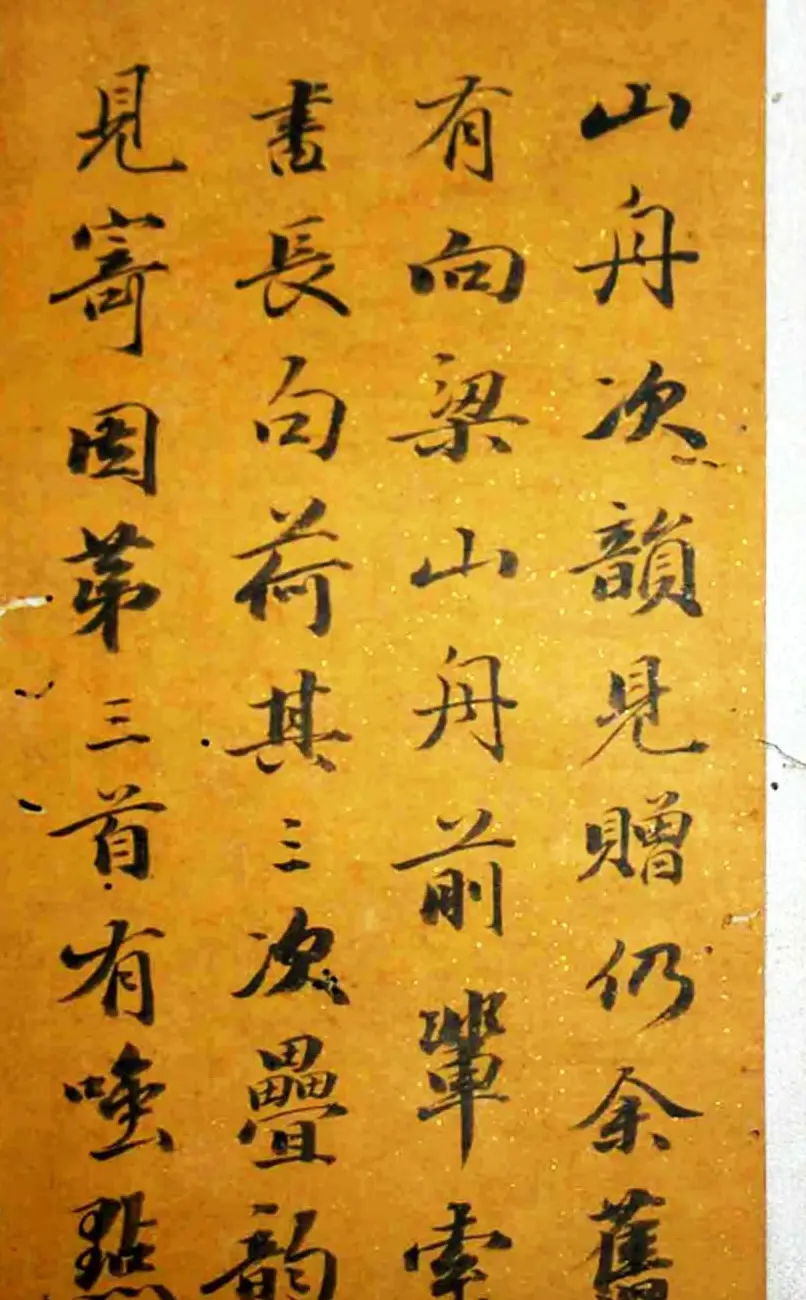 山舟次韻見贈仍余舊
有向梁山舟前輩索
書長句荷其三次疊韻
見寄因第三首有嗤點